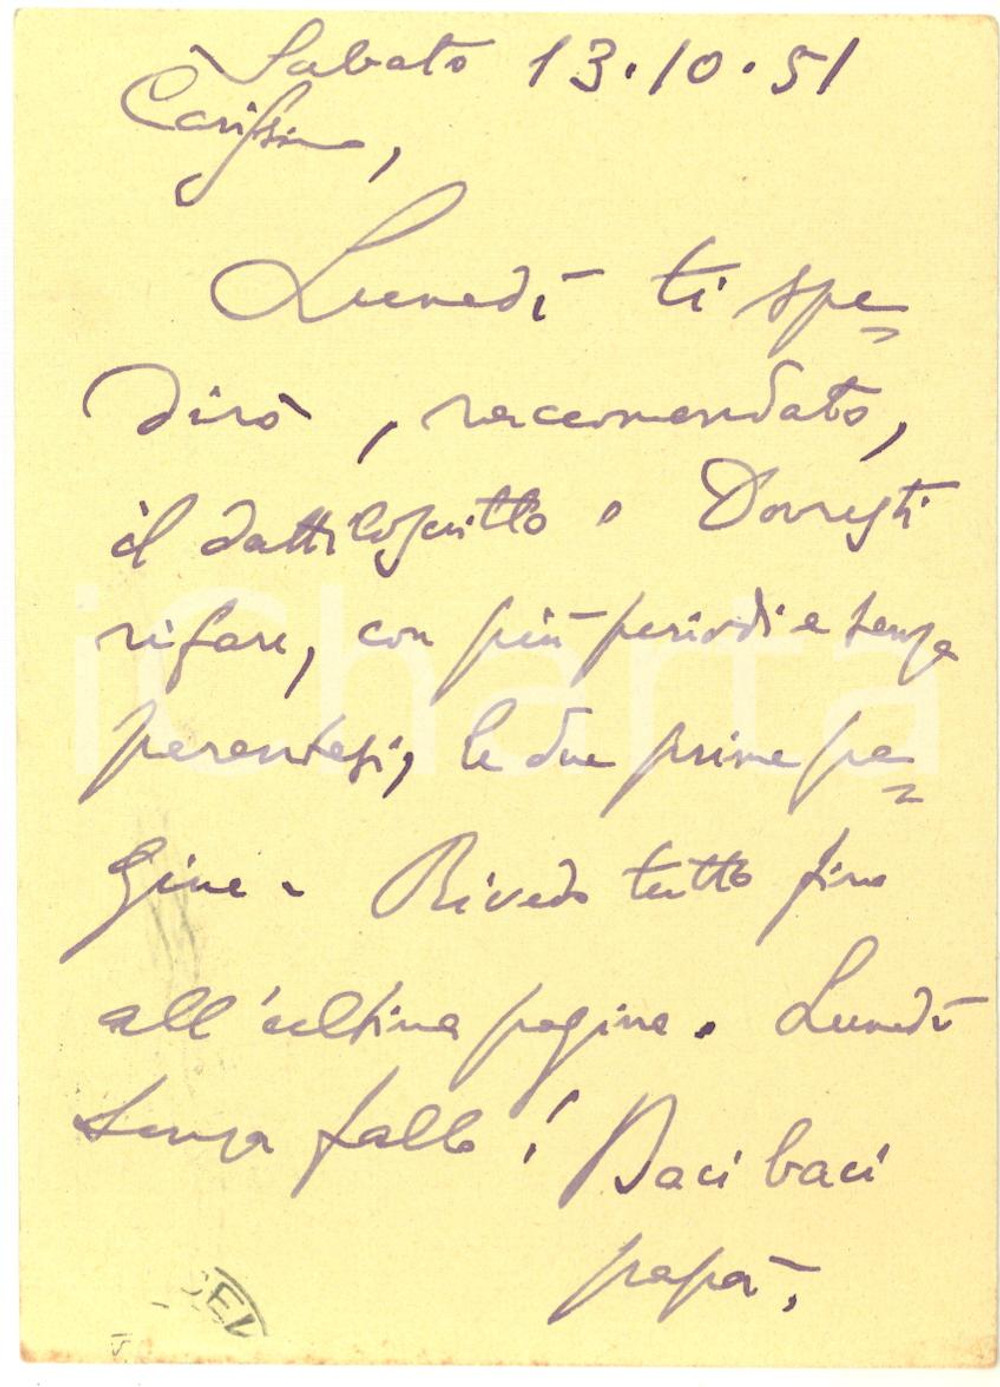 Sabato 13.10.51
Carissimo,
Lunedì ti spe=
dirò, raccomandato,
il dattiloscritto. Dovresti
rifare, con più periodi e senza
parentesi, le due prime pa=
gine. Rivedo tutto fino
all'ultima pagina. Lunedì
senza fallo! Baci baci
papà.
iCharta